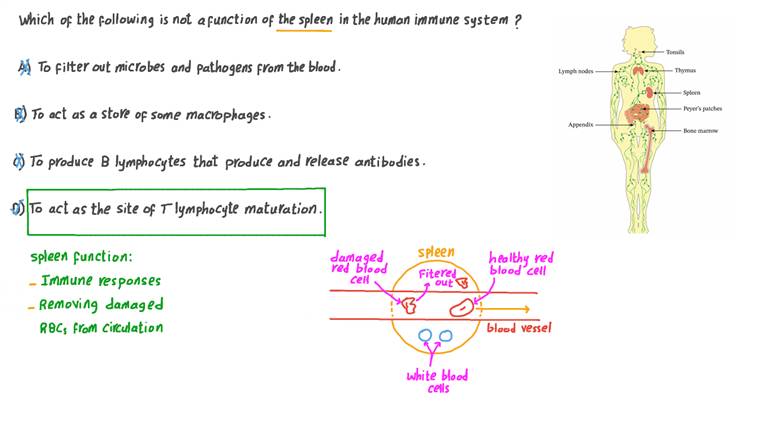 Which of the following is not a function of the spleen in the human immune system ?
A) To filter out microbes and pathogens from the blood.
B) To act as a store of some macrophages.
C) To produce B lymphocytes that produce and release antibodies.
D) To act as the site of T lymphocyte maturation.
Spleen function:
- Immune responses
- Removing damaged
RBCs from circulation
damaged
red blood
cell
spleen
Fitered
out
healthy red
blood cell
blood vessel
white blood
cells
Tonsils
Lymph nodes
Thymus
Spleen
Peyer's patches
Appendix
Bone marrow